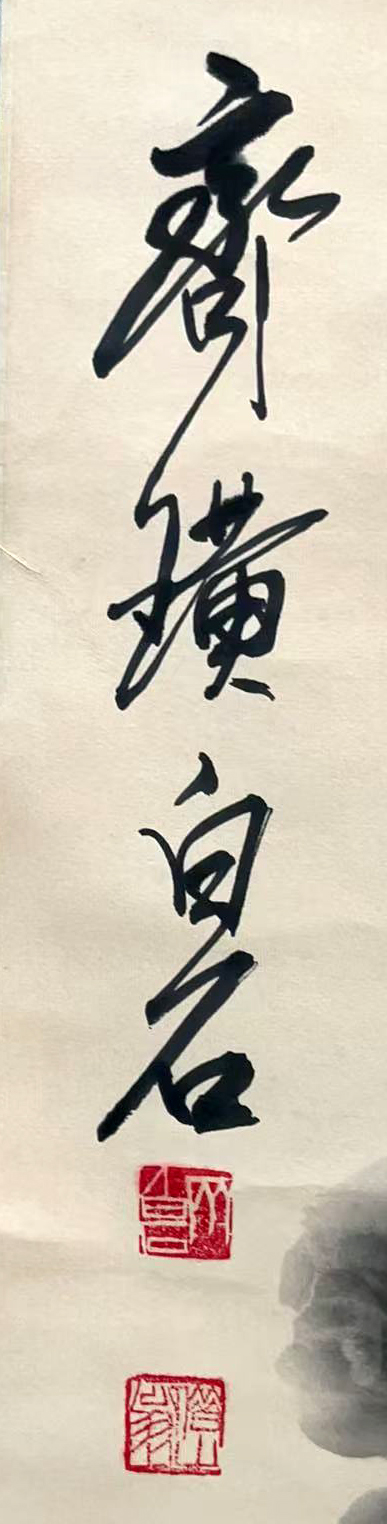 齊璜白石